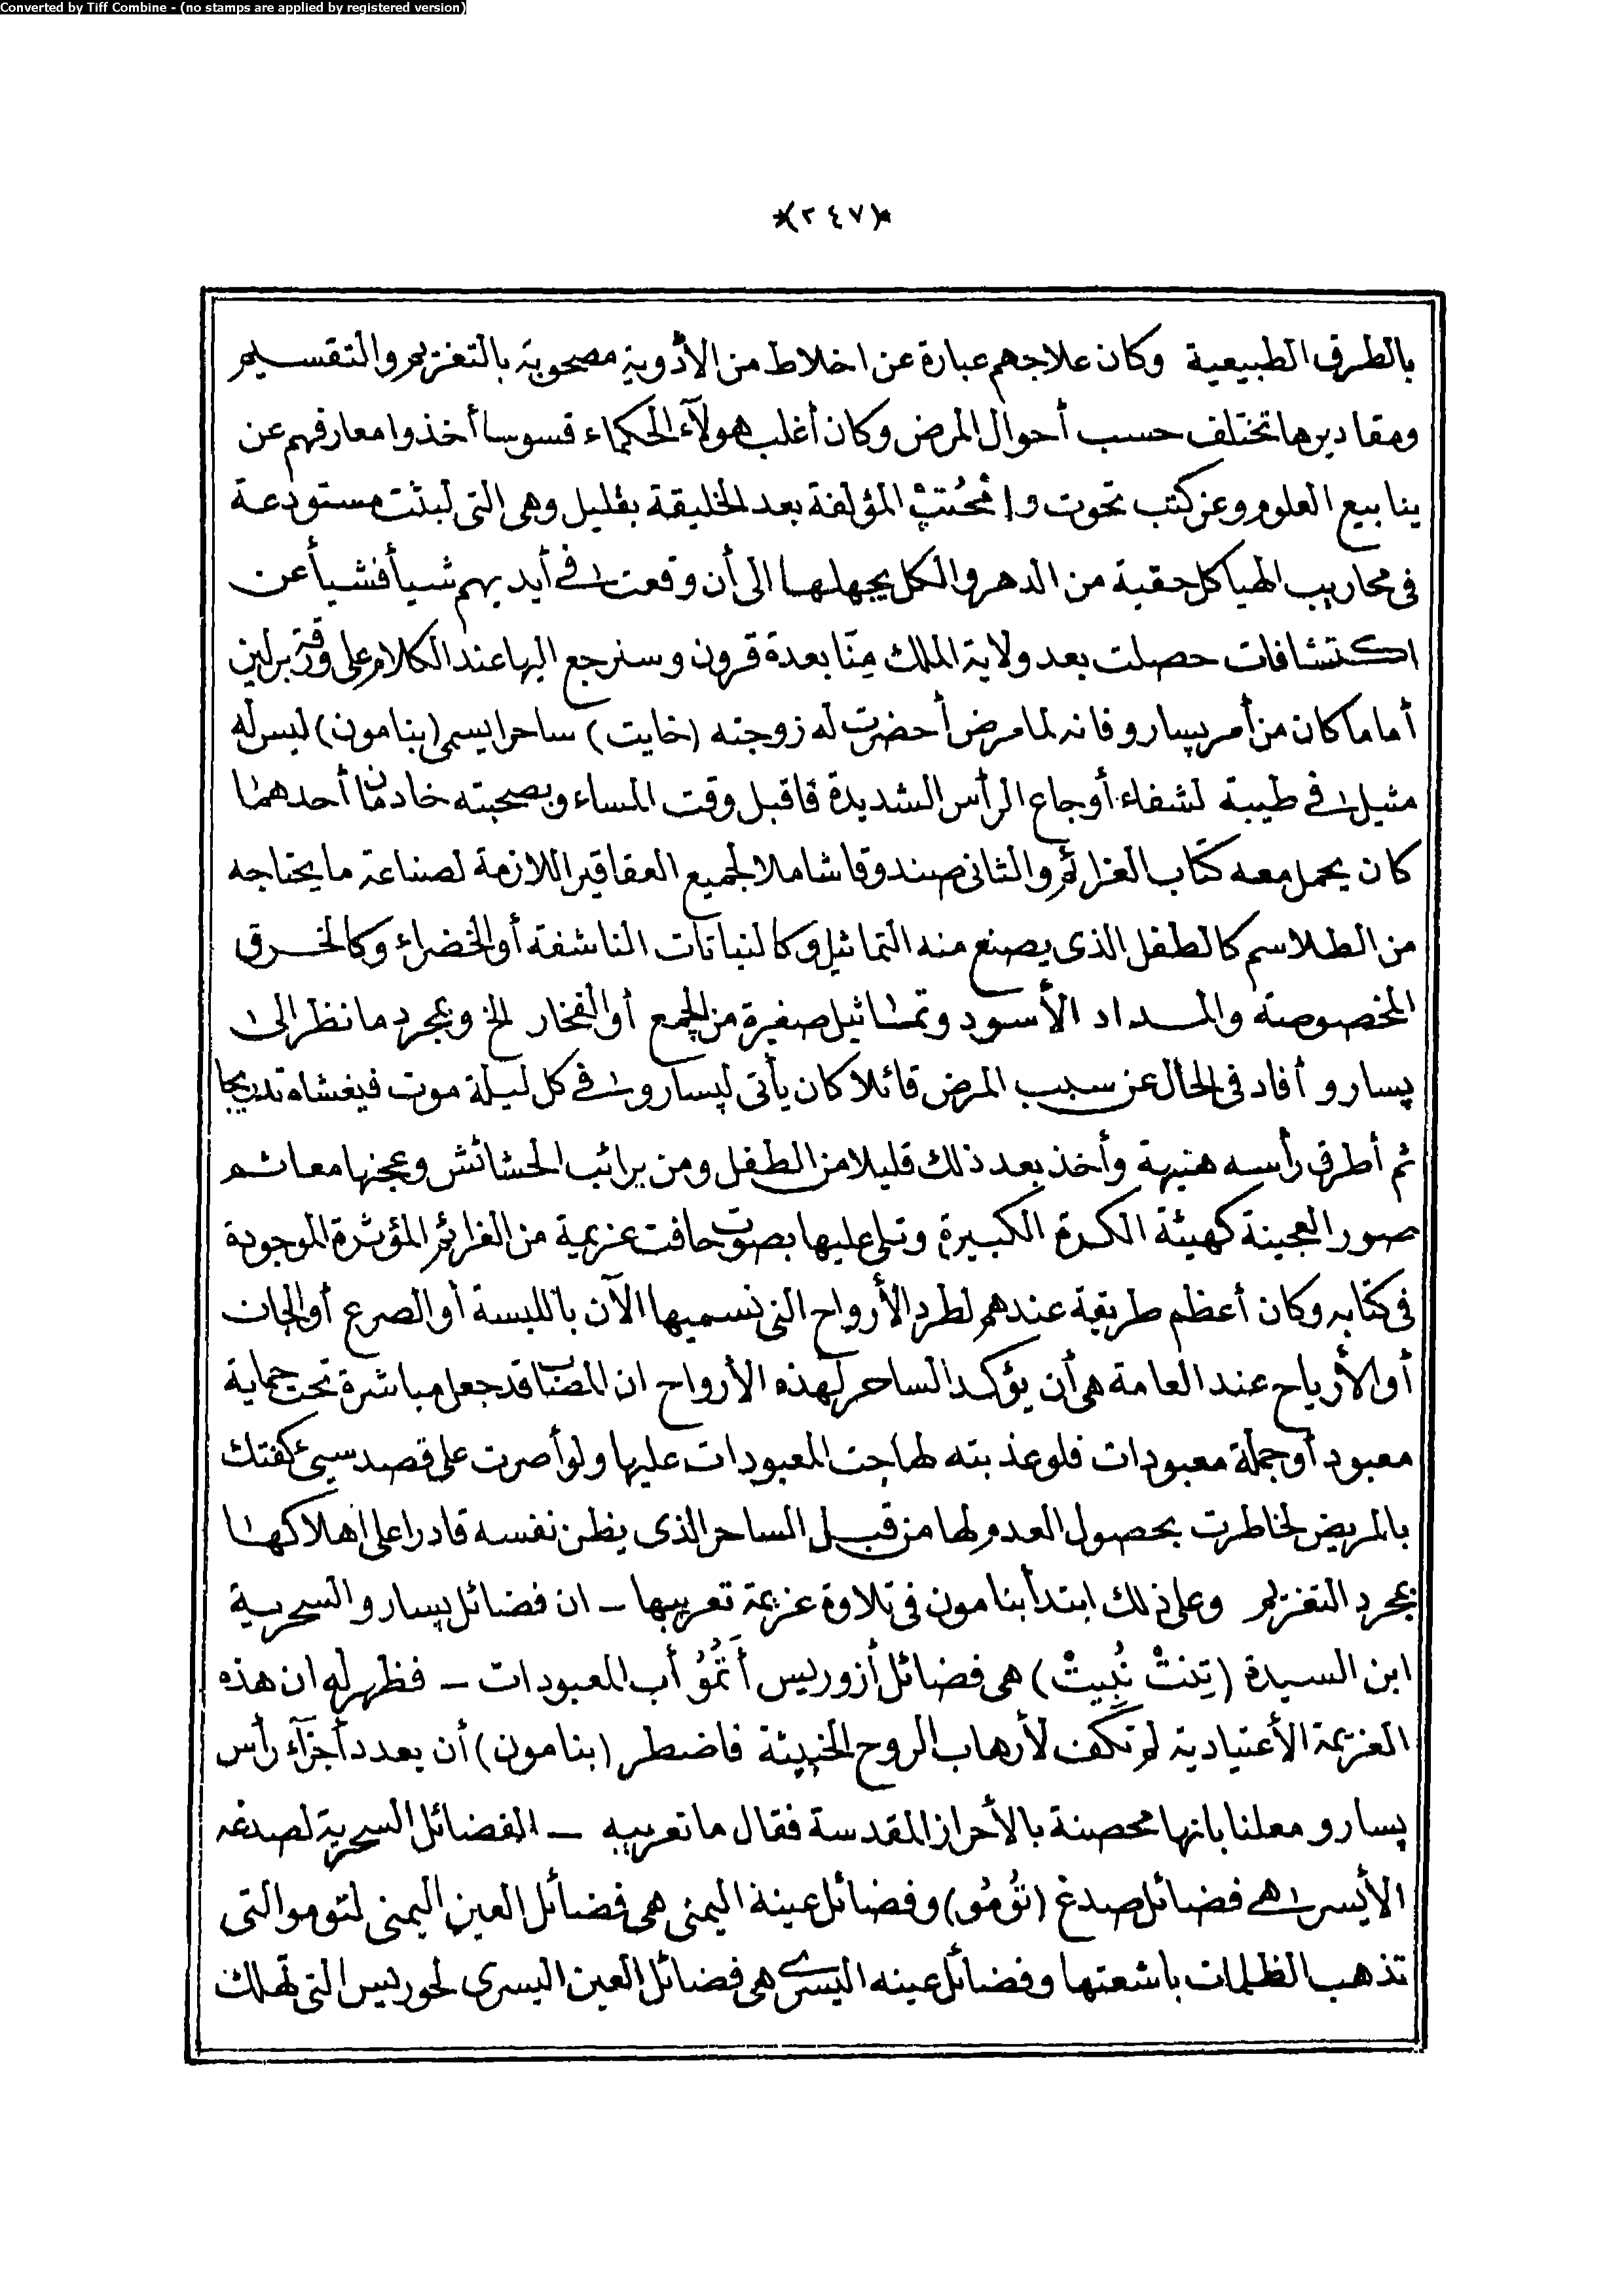 Converted by Tiff Combine - (no stamps are applied by registered version)
*(٢٤٧)*
بالطرق الطبيعية وكان علاجهم عبارة عن اخلاط من الأدوية مصحوبة بالتعزيم والتقسيم
ومقاديرها تختلف حسب أحوال المرض وكان أغلب هولآء الحكماء قسوسا أخذوا معارفهم عن
ينابيع العلوم وعن كتب تحوت و المؤلفة بعد الخليقة بقليل وهى التى لبثت مستودعة
فى محاريب الهياكل حقبة من الدهر والكل يجهلها الى أن وقعت فى أيديهم شيأ فشيأ عن
اكتشافات حصلت بعد ولاية الملك مِنّا بعدة قرون وسنرجع اليها عند الكلام على ورقة برلين
أما ما كان من أمر پسارو فانه لما مرض أحضرت له زوجته (خايت) ساحرا يسمى (بنامون) ليس له
مثيل فى طيبة لشفاء أوجاع الرأس الشديدة فاقبل وقت المساء وبصحبته خادمان أحدهما
كان يحمل معه كتاب العزائم والثانى صندوقا شاملا لجميع العقاقير اللازمة لصناعة ما يحتاجه
من الطلاسم كالطفل الذى يصنع منه التماثيل وكالنباتات الناشفة أو الخضراء وكالخرق
المخصوصة والمداد الأسود وتماثيل صغيرة من الشمع أو الفخار الخ وبمجرد ما نظر الى
پسارو أفاد فى الحال عن سبب المرض قائلا كان يأتى لپسارو فى كل ليلة موت فيغشاه تدريجا
ثم أطرق رأسه هنيهة وأخذ بعد ذلك قليلا من الطفل ومن برائب الحشائش وعجنها معا ثم
صور العجينة كهيئة الكرة الكبيرة وتلى عليها بصوت خافت عزيمة من العزائم المؤثرة الموجودة
فى كتابه وكان أعظم طريقة عندهم لطرد الأرواح التى نسميها الآن باللبسة أو الصرع أو الجان
أو الأرياح عند العامة هى أن يؤكد الساحر لهذه الأرواح ان المصاب قد جعل مباشرة تحت حماية
معبود أو جملة معبودات فلو عذبته لهاجت المعبودات عليها ولو أصرت على قصد سيئ كفتك
بالمريض لخاطرت بحصول العدم لها من قبل الساحر الذى يظن نفسه قادرا على اهلاكها
بمجرد التعزيم وعلى ذلك ابتدأ بنامون فى تلاوة عزيمة تعريبها - ان فضائل پسارو السحرية
ابن السيدة (تِنتْ نُبِيتْ) هى فضائل أزوريس أَتُمُو أب المعبودات - فظهر له ان هذه
العزيمة الأعتيادية لم تكف لأرهاب الروح الخبيثة فاضطر (بنامون) أن يعدد أجزآء رأس
پسارو معلنا بانها محصنة بالأحراز المقدسة فقال ما تعريبه - الفضائل السحرية لصدغه
الأيسر هى فضائل صدغ (تُومُو) وفضائل عينة اليمنى هى فضائل العين اليمنى لتومو التى
تذهب الظلمات باشعتها وفضائل عينه اليسرى هى فضائل العين اليسرى لحوريس التى تهلك